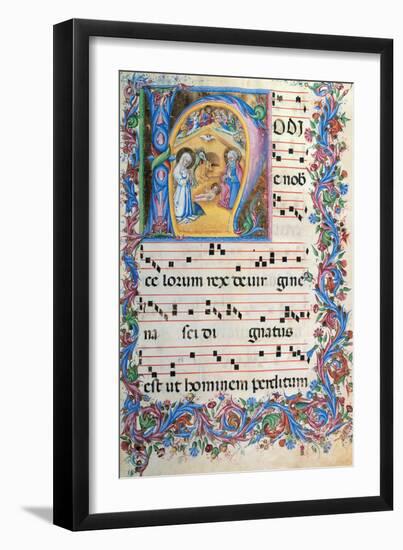 HODI
e nob
ce lorum rex de vir gine
na sci di gnatus
est ut hominem perditum